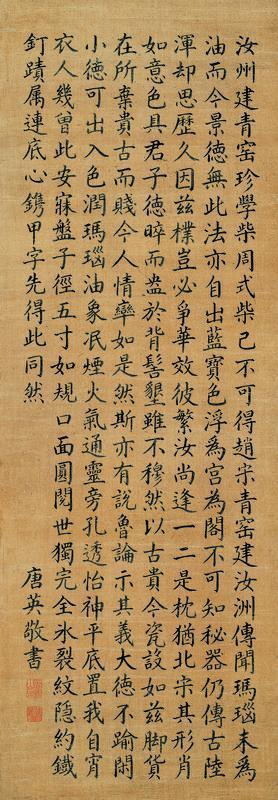 汝州建青窑珍學柴周式柴已不可得趙宋青窑建汝洲傳聞瑪瑙末為
油而今景德無此法亦自出藍寶色浮為宮為閣不可知秘器仍傳古陸
渾却思歷久因茲樸豈必爭華效彼繁汝尚逢一二是枕猶北宋其形肖
如意色具君子德晬而盎於背髻墾雖不穆然以古貴今瓷設如茲脚貨
在所棄貴古而賤今人情率如是然斯亦有說魯論示其義大德不踰閑
小德可出入色潤瑪瑙油象泯煙火氣通靈旁孔透怡神平底置我自宵
衣人幾曾此安寐盤子徑五寸如規口面圓閱世獨完全氷裂紋隱約鐵
釘蹟属連底心鐫甲字先得此同然
唐英敬書